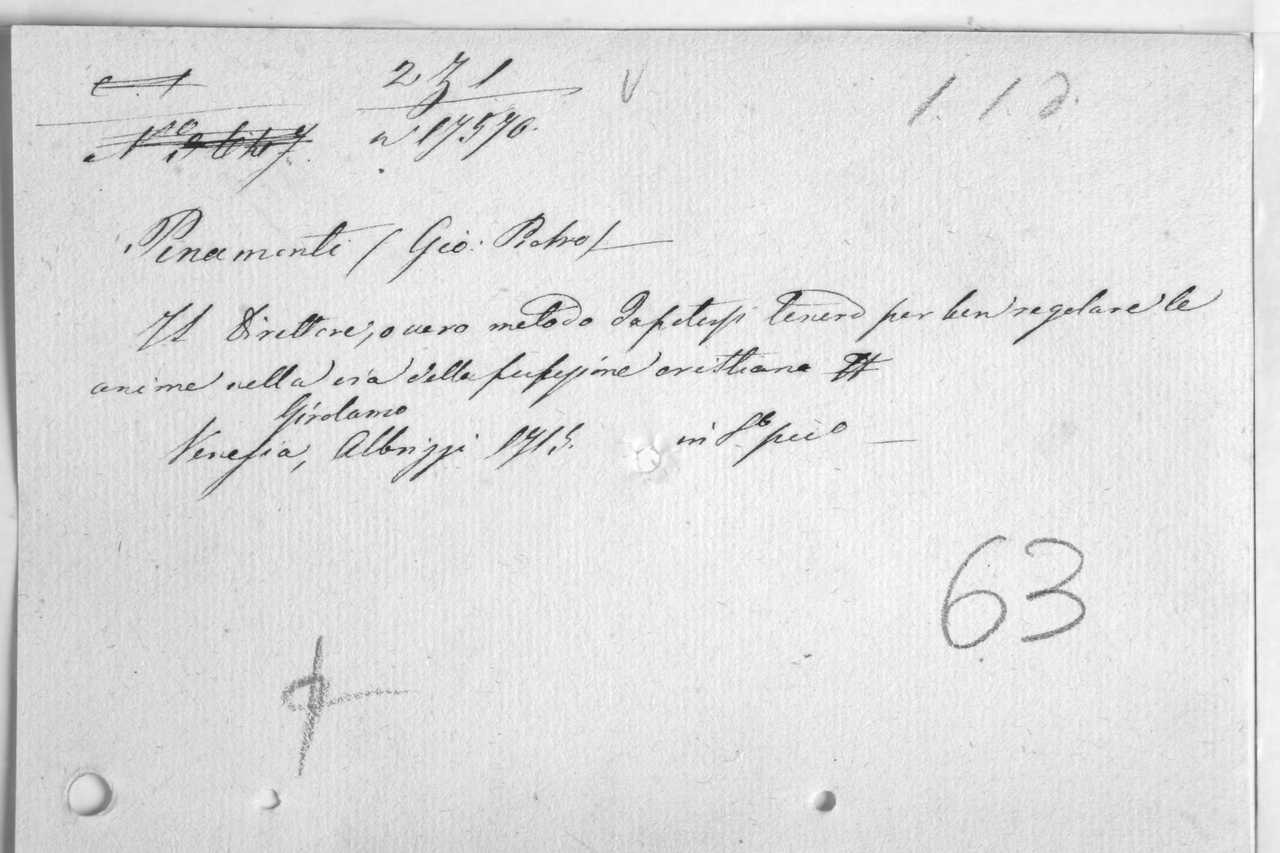 231
1. 1. d.
n 17570.
Pinamonti / Gio: Pietro /
Il Direttore, overo metodo da potersi tenere per ben regolare le
anime nella via della perfezione cristiana
Girolamo
Venezia, Albrizzi 1715. in 8º picº
63